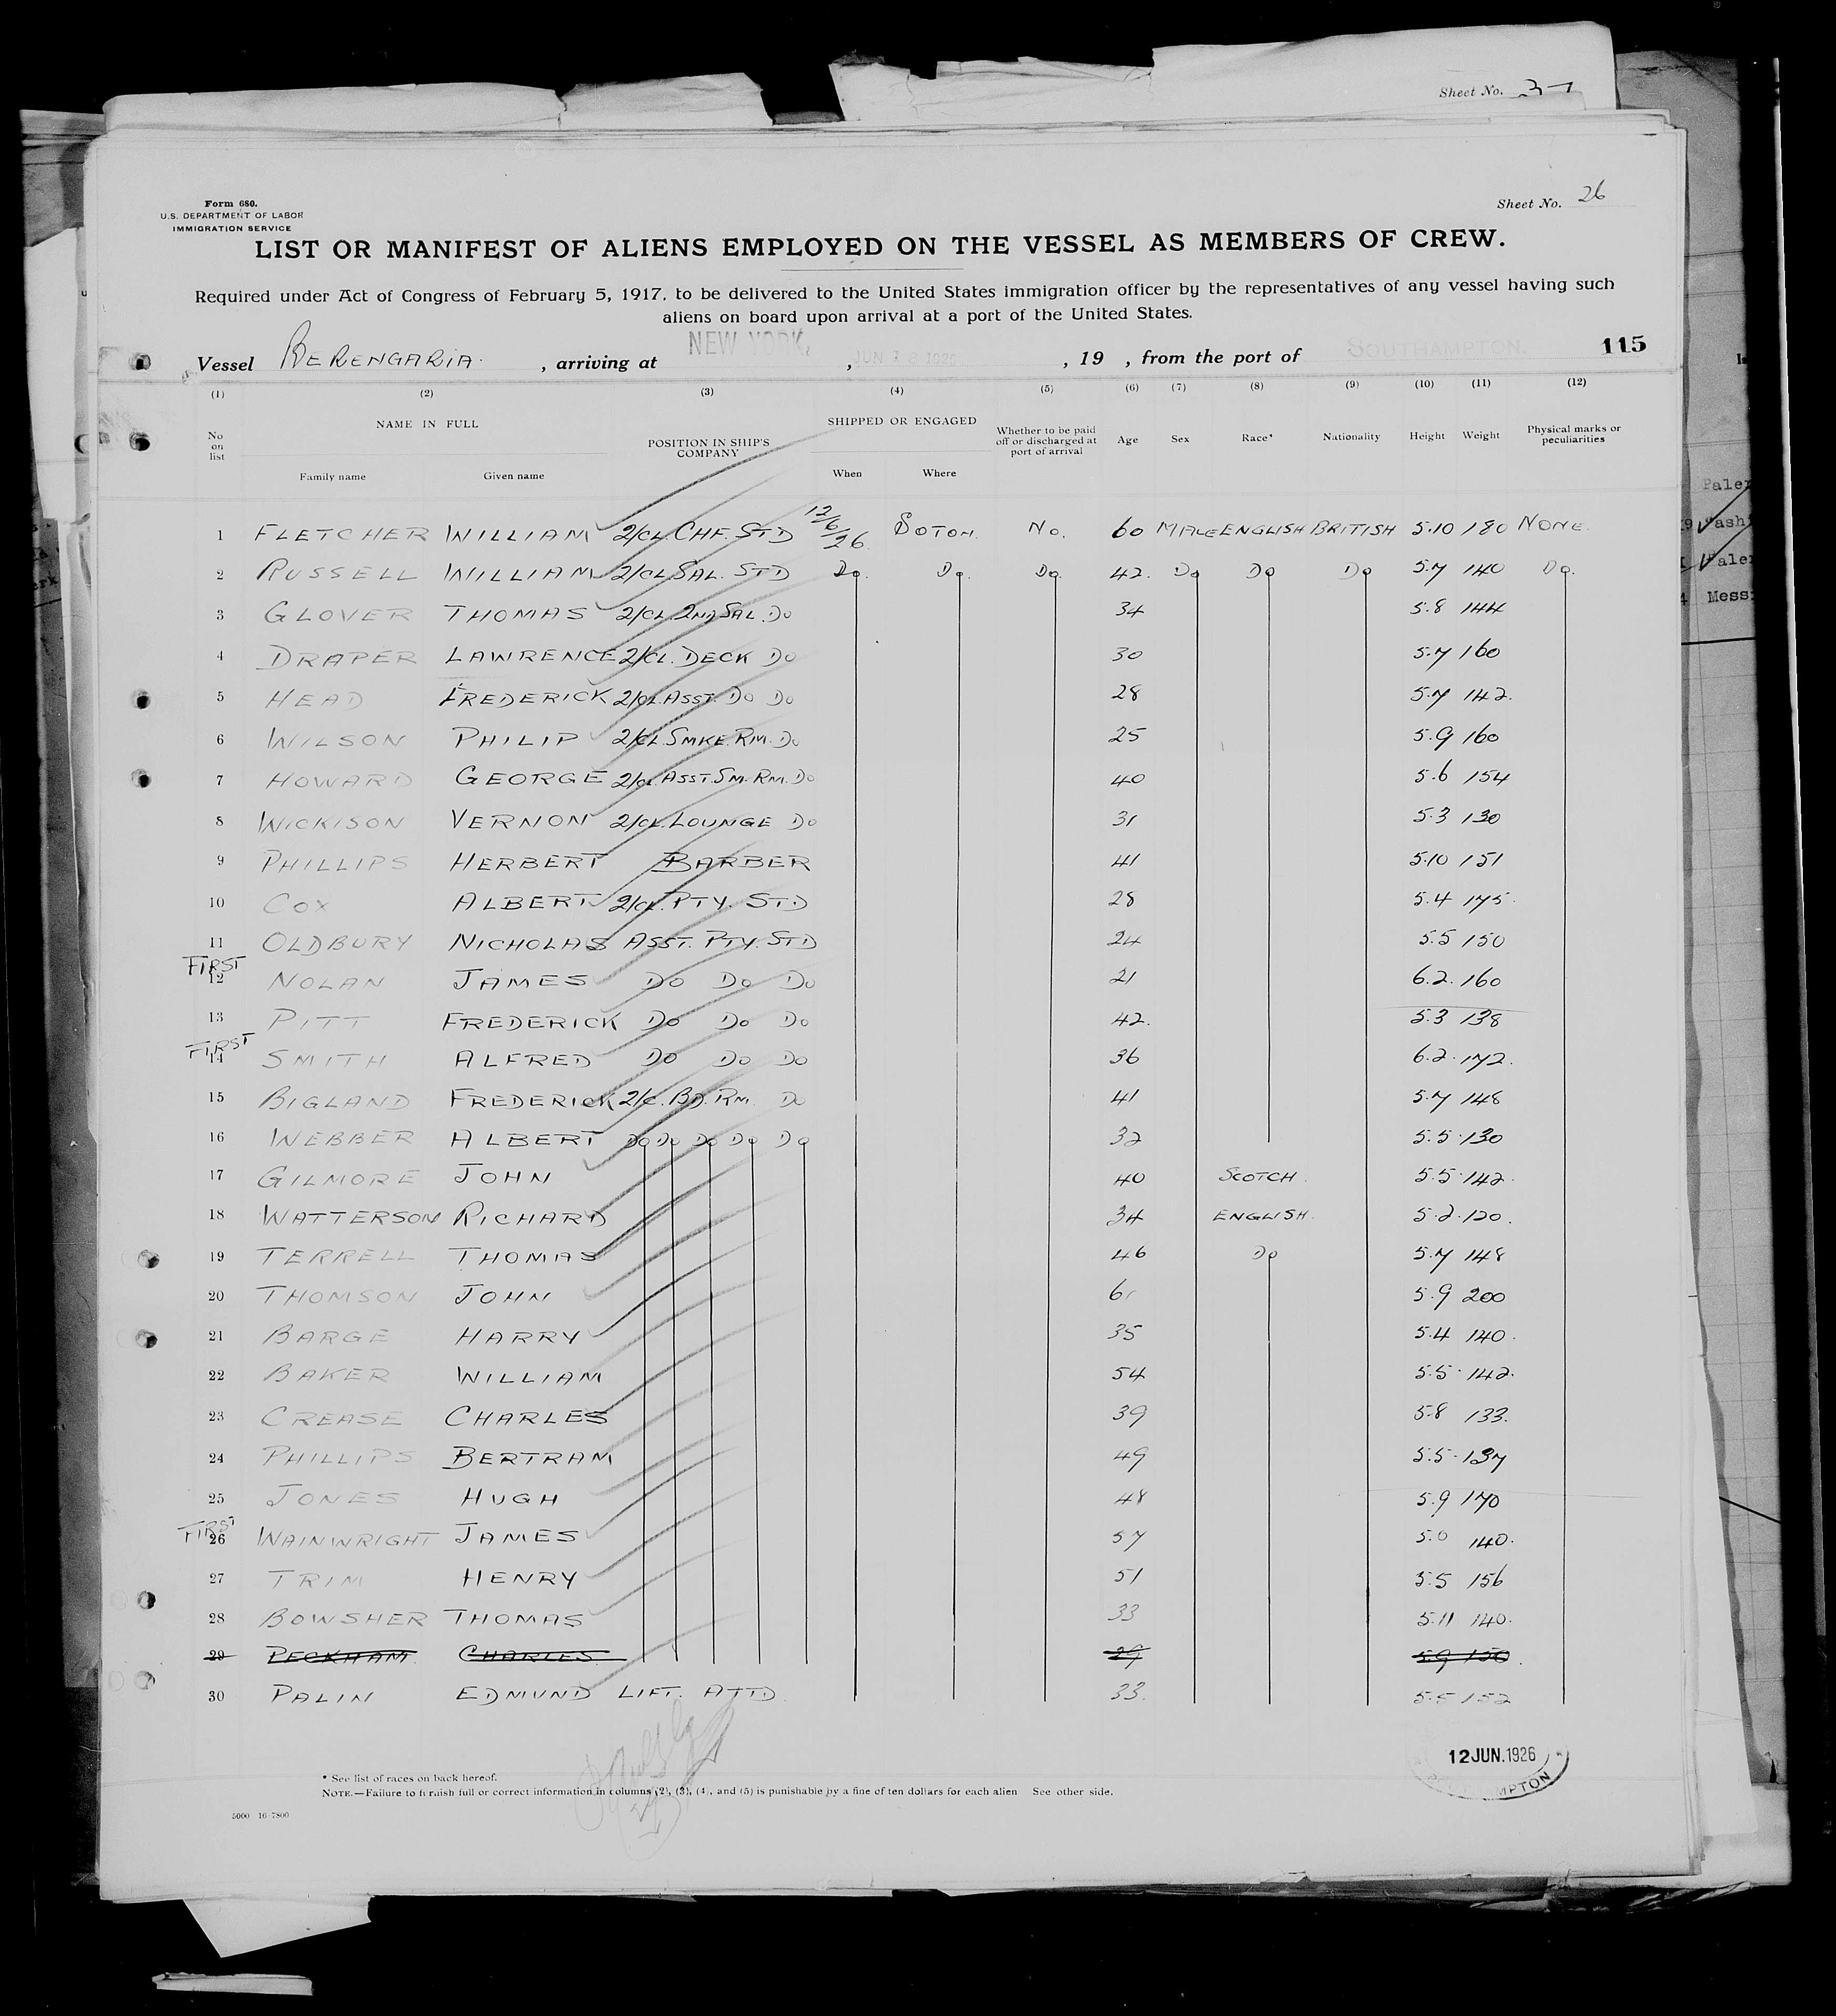 Sheet No. 37
Form 680.
U.S. DEPARTMENT OF LABOR
IMMIGRATION SERVICE
Sheet No. 26
LIST OR MANIFEST OF ALIENS EMPLOYED ON THE VESSEL AS MEMBERS OF CREW.
Required under Act of Congress of February 5, 1917, to be delivered to the United States immigration officer by the representatives of any vessel having such
aliens on board upon arrival at a port of the United States.
Vessel BERENGARIA. , arriving at NEW YORK, , JUN 18 1926 , 19 , from the port of SOUTHAMPTON. 115
(1) (2) (3) (4) (5) (6) (7) (8) (9) (10) (11) (12)
No on list NAME IN FULL Family name Given name POSITION IN SHIP'S COMPANY SHIPPED OR ENGAGED When Where Whether to be paid off or discharged at port of arrival Age Sex Race* Nationality Height Weight Physical marks or peculiarities
1 FLETCHER WILLIAM 2/CL. CHF. STD 12/6/26. SOTON. No. 60 MALE ENGLISH BRITISH 5.10 180 NONE.
2 RUSSELL WILLIAM 2/CL SAL. STD Do. Do. Do. 42. Do Do Do 5.7 140 Do.
3 GLOVER THOMAS 2/CL. 2ND SAL. Do 34 5.8 144
4 DRAPER LAWRENCE 2/CL. DECK Do 30 5.7 160
5 HEAD FREDERICK 2/CL. ASST. Do Do 28 5.7 142.
6 WILSON PHILIP 2/CL. SMKE. RM. Do 25 5.9 160
7 HOWARD GEORGE 2/CL. ASST. SM. RM. Do 40 5.6 154
8 WICKISON VERNON 2/CL. LOUNGE Do 31 5.3 130
9 PHILLIPS HERBERT BARBER 41 5.10 151
10 COX ALBERT 2/CL. PTY. STD 28 5.4 175.
11 OLDBURY NICHOLAS ASST. PTY. STD 24 5.5 150
FIRST
12 NOLAN JAMES Do Do Do 21 6.2. 160
13 PITT FREDERICK Do Do Do 42. 5.3 138
FIRST
14 SMITH ALFRED Do Do Do 36 6.2. 172.
15 BIGLAND FREDERICK 2/C. BD. RM. Do 41 5.7 148
16 WEBBER ALBERT Do Do Do Do Do 32 5.5. 130
17 GILMORE JOHN 40 SCOTCH. 5.5. 142.
18 WATTERSON RICHARD 34 ENGLISH. 5.2. 120.
19 TERRELL THOMAS 46 Do 5.7 148
20 THOMSON JOHN 61 5.9 200
21 BARGE HARRY 35 5.4 140.
22 BAKER WILLIAM 54 5.5. 142.
23 CREASE CHARLES 39 5.8 133.
24 PHILLIPS BERTRAM 49 5.5. 137
25 JONES HUGH 48 5.9 170
FIRST
26 WAINWRIGHT JAMES 57 5.0 140.
27 TRIM HENRY 51 5.5 156
28 BOWSHER THOMAS 33 5.11 140.
29 PECKHAM CHARLES 29 5.9 150.
30 PALIN EDMUND LIFT. ATTD. 33. 5.5 152
12 JUN. 1926
* See list of races on back hereof.
NOTE.—Failure to furnish full or correct information in columns (2), (3), (4), and (5) is punishable by a fine of ten dollars for each alien See other side.
5000 16-7800
Messi